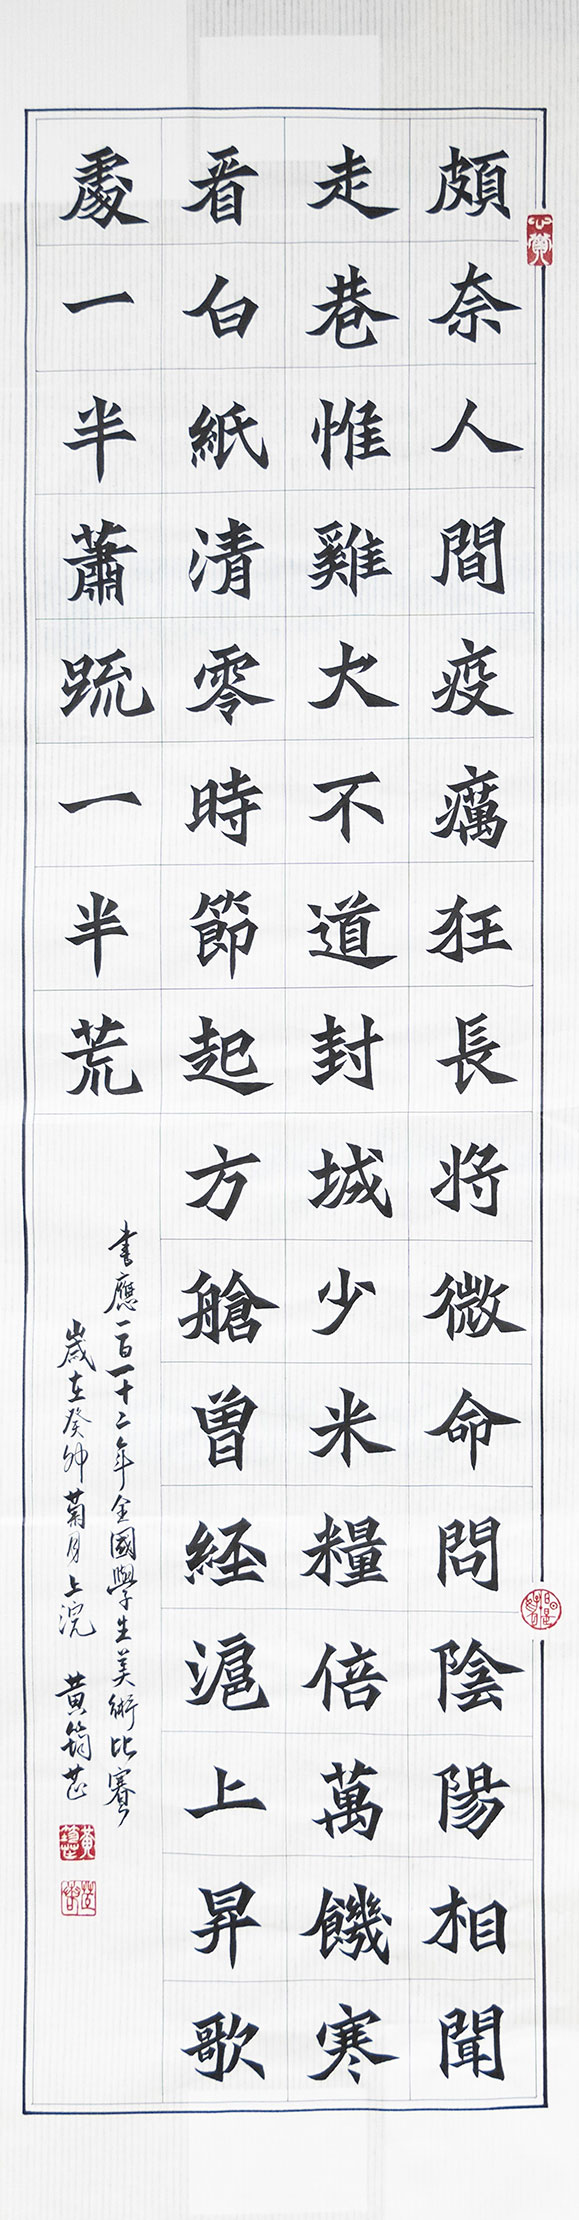 頗奈人間疫癘狂長將微命問陰陽相聞
走巷惟雞犬不道封城少米糧倍萬饑寒
看白紙清零時節起方艙曾經滬上昇歌
處一半蕭疏一半荒
書應一百一十二年全國學生美術比賽
歲在癸卯菊月上浣 黃筠芷